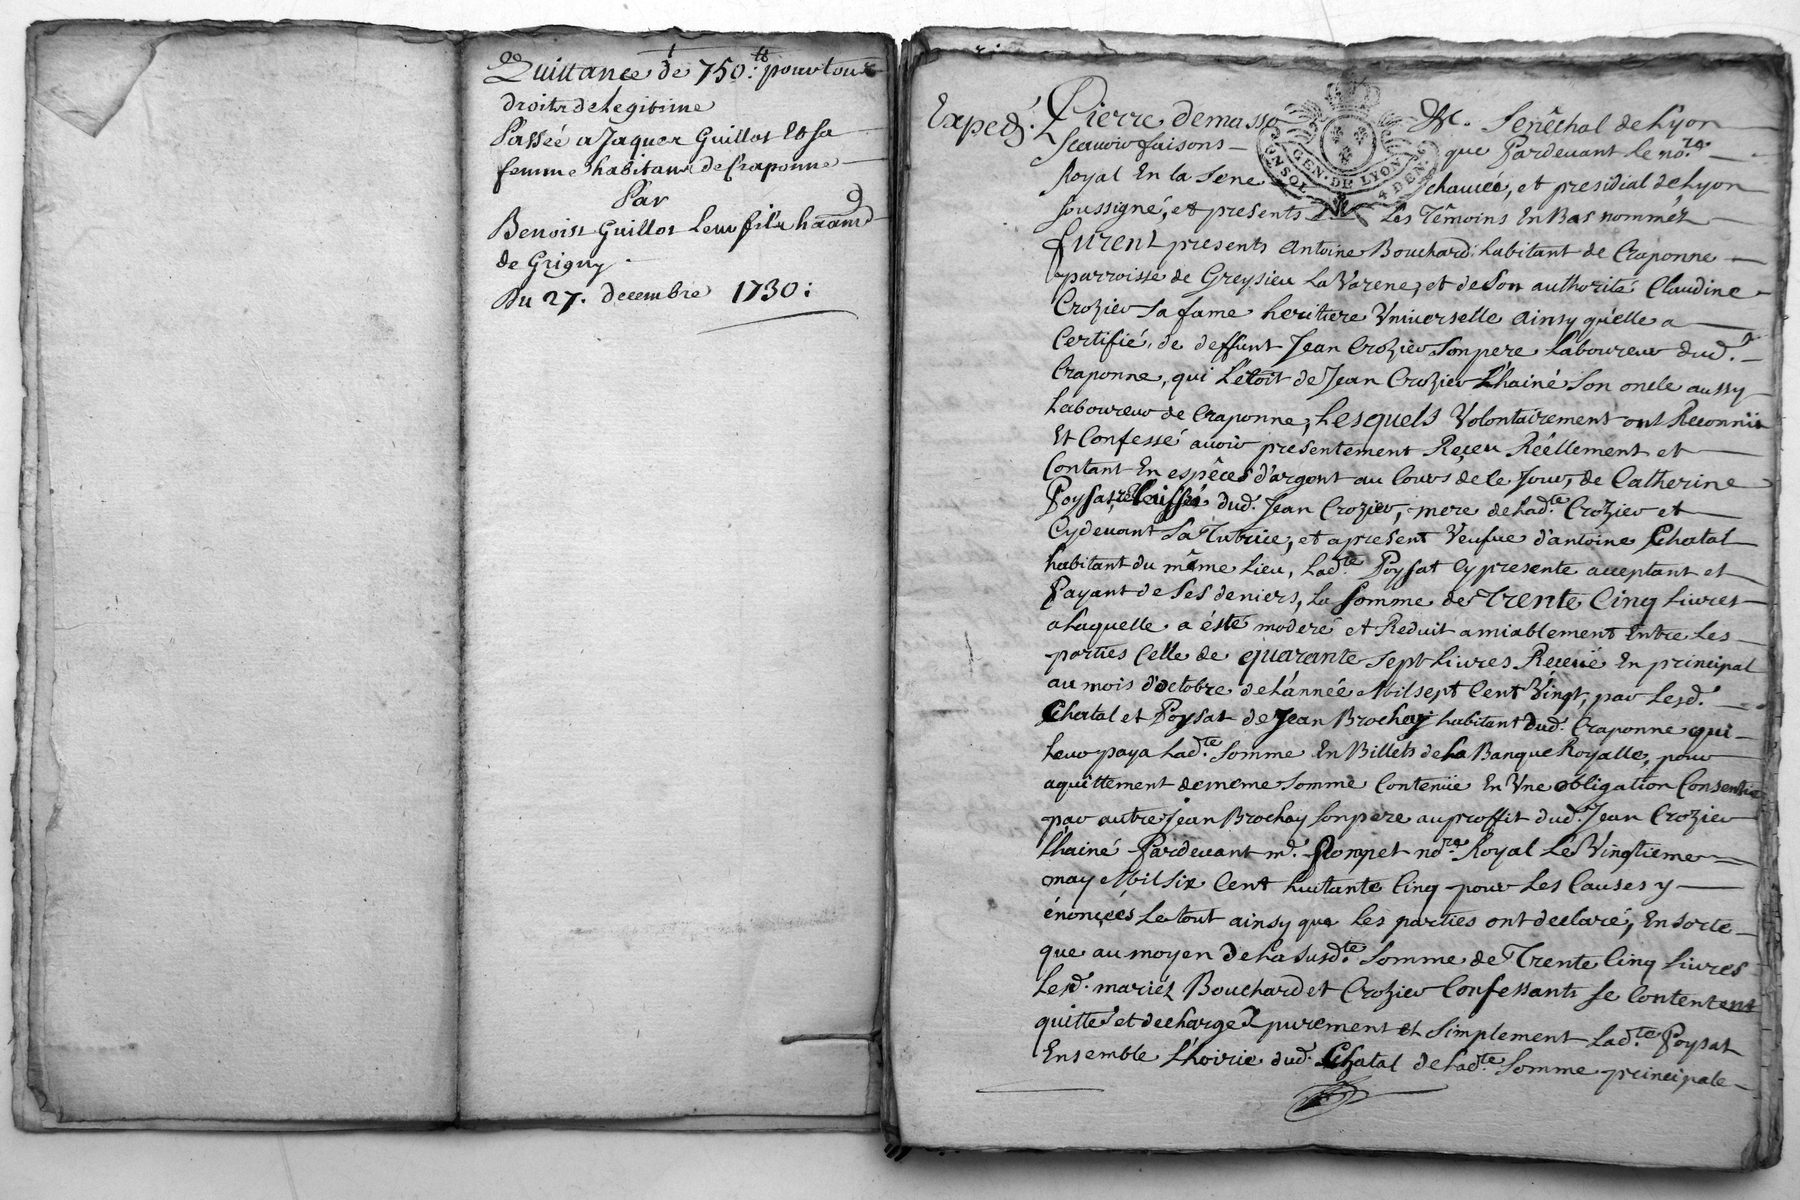 Quittance de 750.tt pour tous
droits de Legitime
Passée a Jaques Guillot Et sa
femme habitans de Craponne
Par
Benoist Guillot Leur fils
de Grigny.
Du 27. decembre 1730:
Exped.
Pierre demasso &c. Senêchal de Lyon
Scauoir faisons que Pardeuant le nore.
Royal En la Senechaucée, et presidial de Lyon
soussigné, et presents Les Têmoins En Bas nommèz
GEN. DE LYON
4 DEN.
furent presents Antoine Bouchard habitant de Craponne
parroisse de Greysieu La Varene, et de son authorité Claudine
Crozier sa fame heritiere Vniuerselle ainsy qu'elle a
Certifié, de deffunt Jean Crozier son pere Laboureur dud.
Craponne, qui L'êtoit de Jean Crozier L'hainé son oncle aussy
Laboureur de Craponne, Lesquels Volontairement ont Reconnü
Et Confessé auoir presentement Reçeu Réellement et
Contant En espêces d'argent au Cours de ce Jour, de Catherine
Poysat, relaissée dud. Jean Crozier, mere de Lad.te Crozier et
Cydeuant sa Tutrice, et apresent Veufue d'antoine Chatal
habitant du même Lieu, Lad.te Poysat Cy presente acceptant et
Payant de ses deniers, La somme de Trente Cinq Liures
a Laquelle a éste moderé et Reduit amiablement Entre Les
parties Celle de quarante sept Liures Receüe En principal
au mois d'octobre de L'année Mil sept Cent Vingt, par Lesd.
Chatal et Poysat de Jean Brochay habitant dud. Craponne qui
Leur paya Lad.te somme En Billets de La Banque Royalle, pour
aquittement de meme somme Contenüe En Vne obligation Consentie
par autre Jean Brochay son pere au proffit dud. Jean Crozier
L'hainé Pardeuant m.e Pompet no.re Royal Le Vingtiême
may Mil six Cent huitante Cinq pour Les Causes y
énonçées Le tout ainsy que Les parties ont declaré, En sorte
que au moyen de La susd.te somme de Trente Cinq Liures
Lesd. mariéz Bouchard et Crozier Confessants se Contentent
quitte et decharge purement et simplement Lad.te Poysat
Ensemble L'hoirie dud. Chatal de Lad.te somme principale